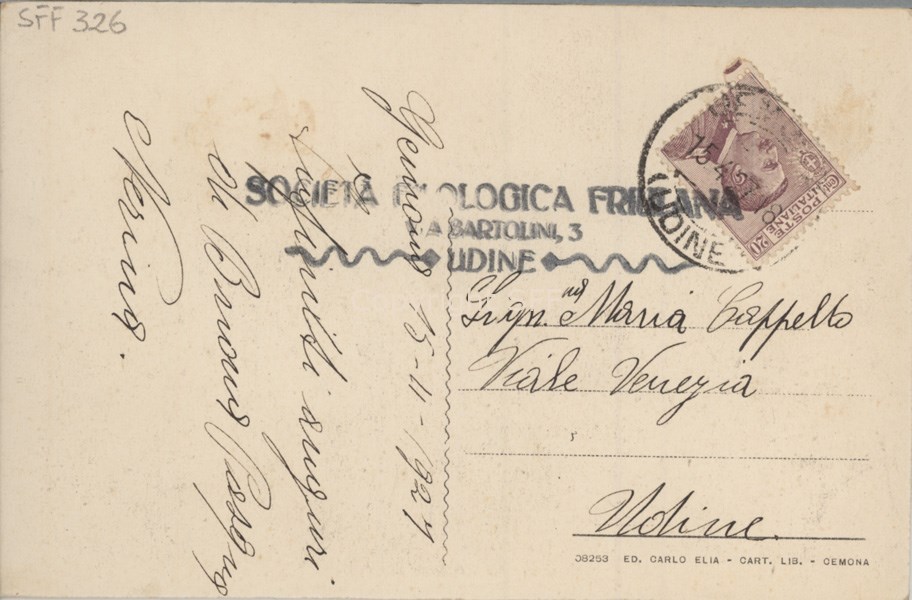 SFF 326
Gemona 15-4-1927
Infiniti auguri
di Buona Pasqua
Nerina.
SOCIETÀ FILOLOGICA FRIULANA
VIA BARTOLINI, 3
UDINE
15.4.27
UDINE
POSTE
ITALIANE
20
Sign.na Maria Cappello
Viale Venezia
Udine.
38253 ED. CARLO ELIA - CART. LIB. - GEMONA